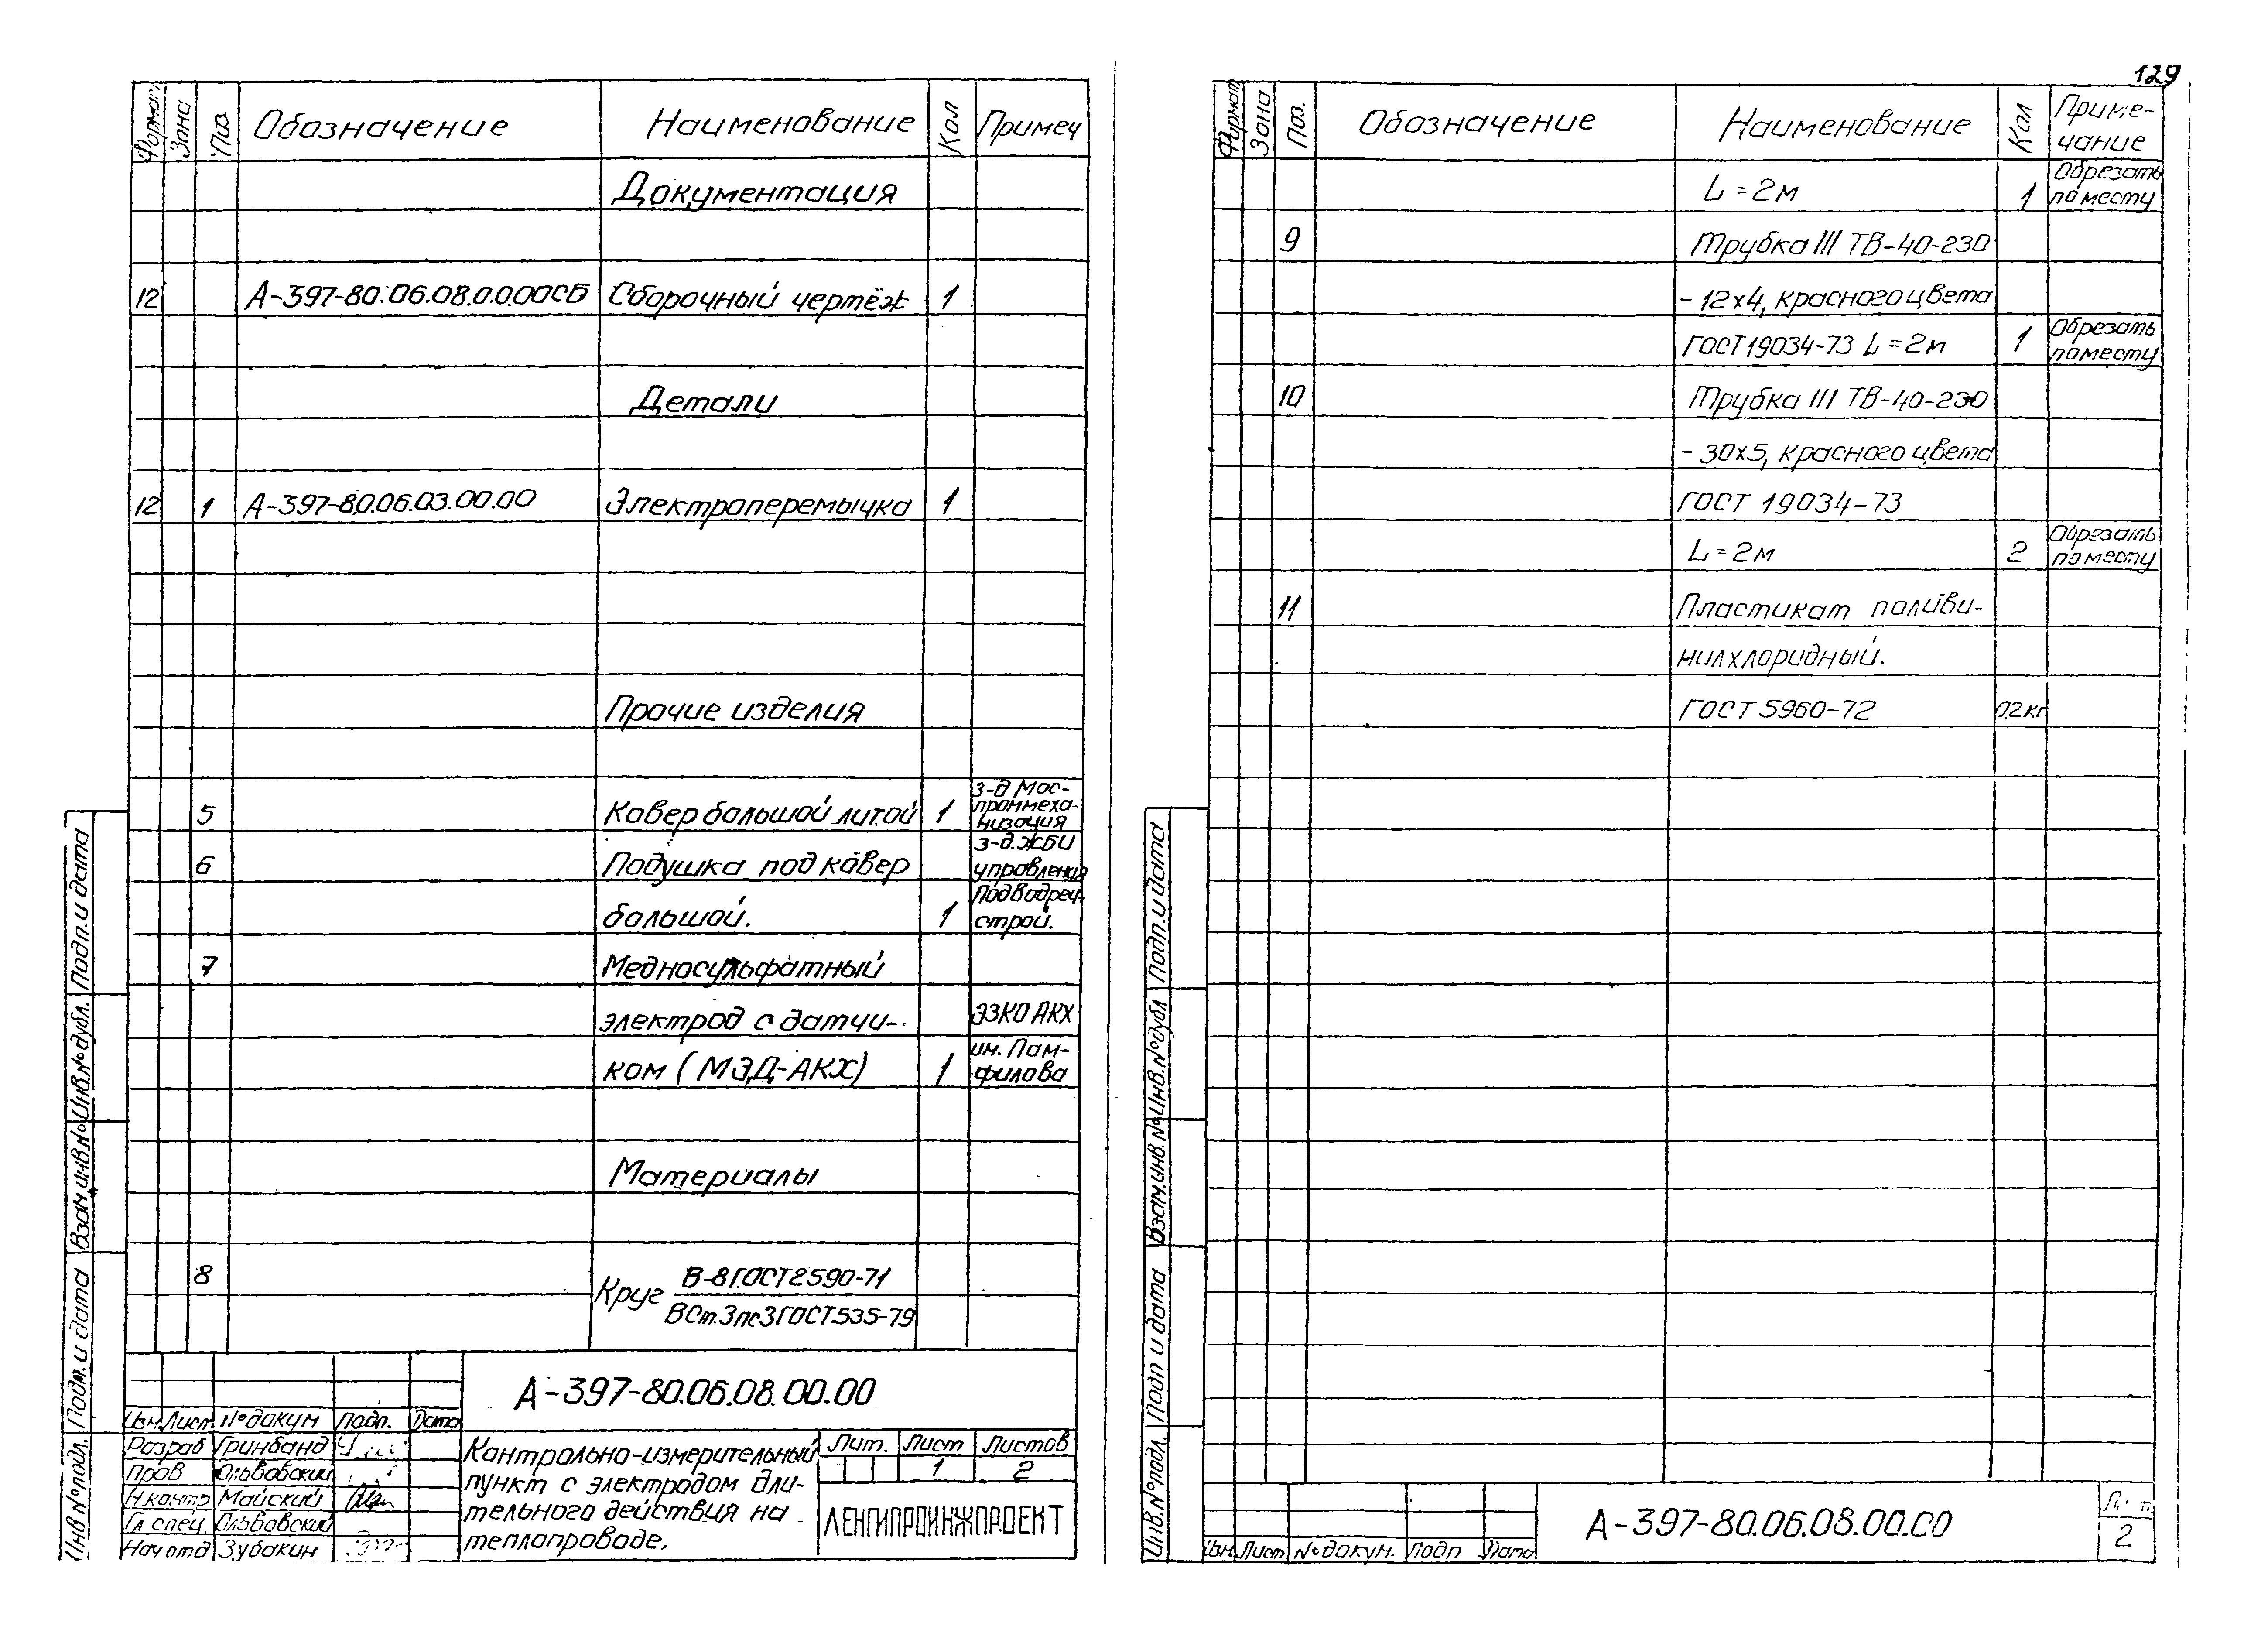 129
Формат Зона Поз. Обозначение Наименование Кол Примеч
Документация
12 А-397-80.06.08.0.0.00СБ Сборочный чертёж 1
Детали
12 1 А-397-80.06.03.00.00 Электроперемычка 1
Прочие изделия
5 Ковер большой литой 1 з-д Мос-
проммеха-
низация
6 Подушка под ковер з-д.ЖБИ
управления
большой. 1 Подводреч-
строй.
7 Медносульфатный
электрод с датчи- ЭЗКО АКХ
ком (МЭД-АКХ) 1 им. Пам-
филова
Материалы
8 Круг В-8 ГОСТ 2590-71
ВСт.3пс3 ГОСТ 535-79
А-397-80.06.08.00.00
Изм. Лист №докум Подп. Дата
Разраб Гринбанд
Пров Ольвовский
Н.контр Майский
Гл спец Ольвовский
Нач отд Зубакин
Контрольно-измерительный
пункт с электродом дли-
тельного действия на
теплопроводе.
Лит. Лист Листов
1 2
ЛЕНГИПРОИНЖПРОЕКТ
Инв №подл. Подп. и дата Взам инв.№ Инв.№дубл. Подп. и дата
Формат Зона Поз. Обозначение Наименование Кол Приме-
чание
L = 2м 1 Обрезать
по месту
9 Трубка III ТВ-40-230
- 12х4, красного цвета
ГОСТ 19034-73 L = 2м 1 Обрезать
по месту
10 Трубка III ТВ-40-230
- 30х5, красного цвета
ГОСТ 19034-73
L = 2м 2 Обрезать
по месту
11 Пластикат поливи-
нилхлоридный.
ГОСТ 5960-72 0,2кг
А-397-80.06.08.00.00
2
Изм Лист №докум. Подп Дата
Инв.№подл. Подп и дата Взам.инв.№ Инв.№дубл Подп. и дата